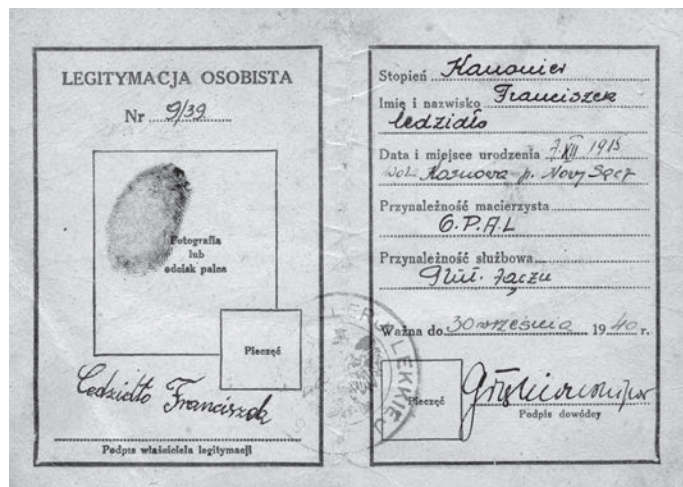 LEGITYMACJA OSOBISTA
Nr 9/39
Fotografia
lub
odcisk palca
Pieczęć
Cedzidło Franciszek
Podpis właściciela legitymacji
Stopień Kanonier
Imię i nazwisko Franciszek
Cedzidło
Data i miejsce urodzenia 7 XII 1915
Kosnowa p. Nowy Sącz
Przynależność macierzysta
6.P.A.L
Przynależność służbowa
Plut. Łączn
Ważna do 30 września 1940 r.
Pieczęć
Podpis dowódcy
LEKKIEJ